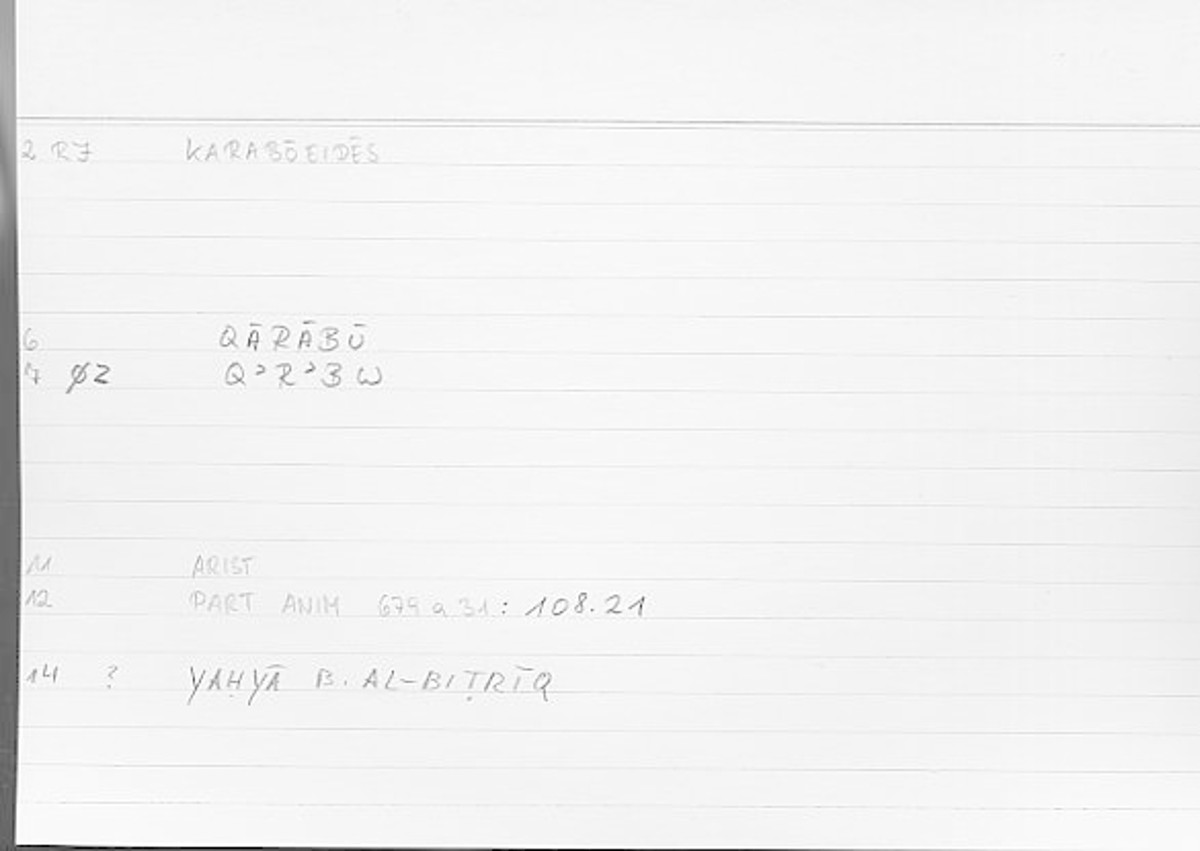 2 RJ KARABŌEIDĒS
6 QĀRĀBŪ
7 ØZ QʾRʾBW
11 ARIST
12 PART ANIM 679 a 31 : 108.21
14 ? YAḤYĀ B. AL-BIṬRĪQ